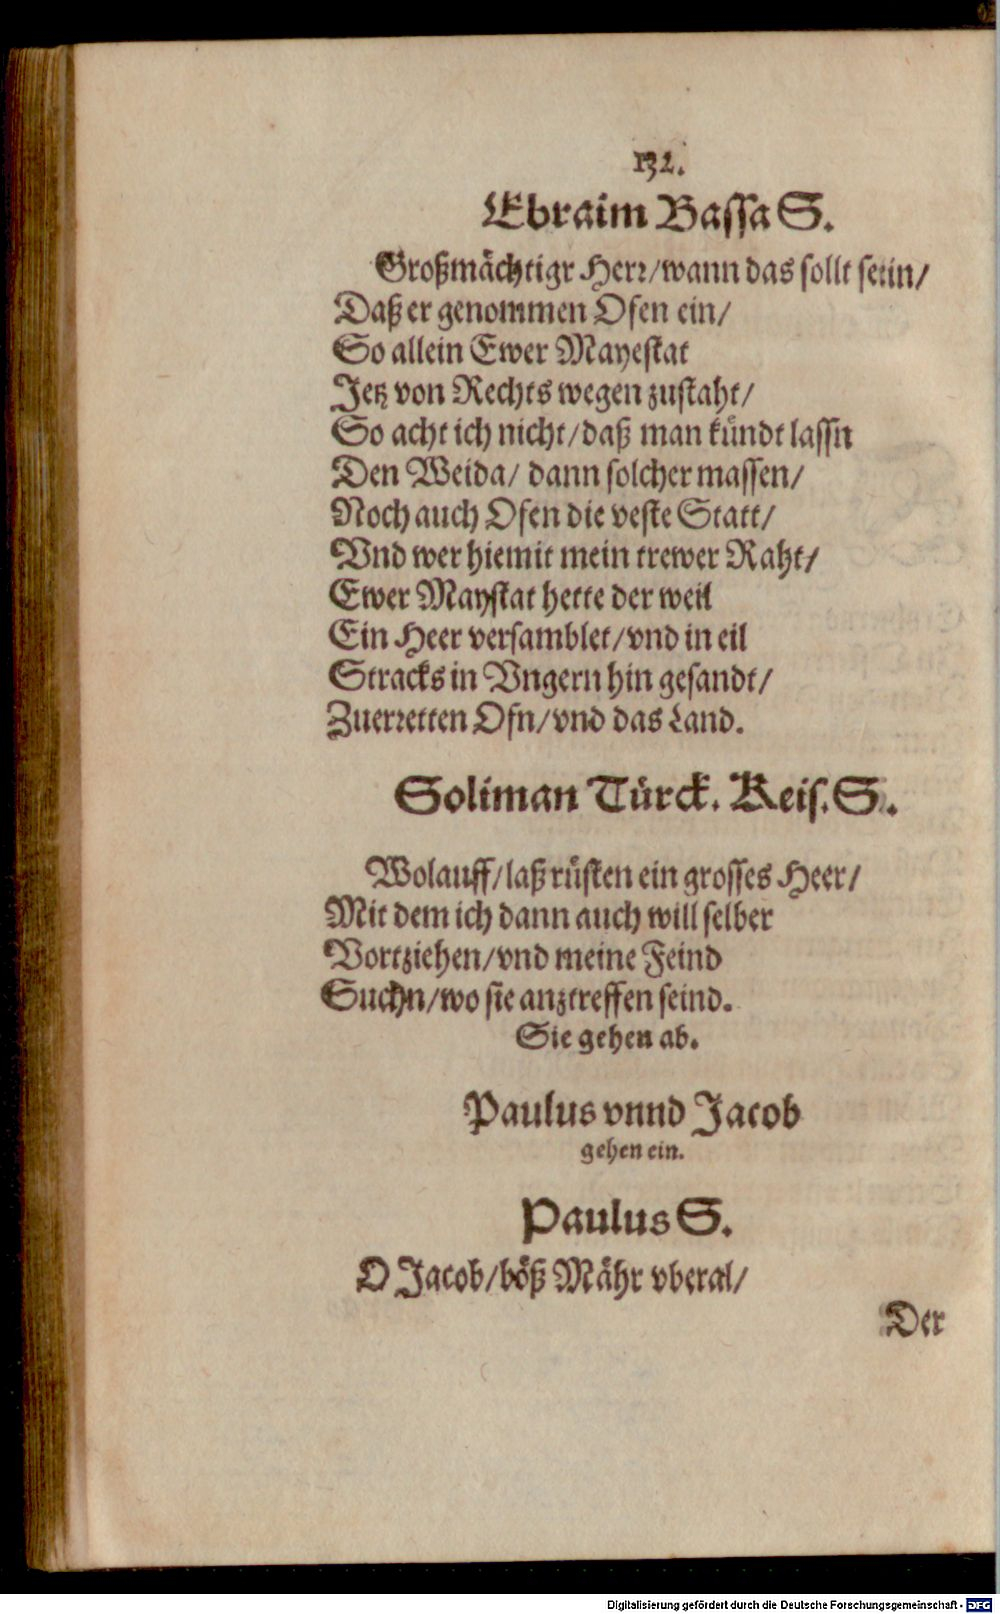 132.
Ebraim Bassa S.
Großmächtigr Herr/wann das sollt seiin/
Daß er genommen Ofen ein/
So allein Ewer Mayestat
Jetz von Rechts wegen zustaht/
So acht ich nicht/daß man kündt lassn
Den Weida/ dann solcher massen/
Noch auch Ofen die veste Statt/
Vnd wer hiemit mein trewer Raht/
Ewer Maystat hette der weil
Ein Heer versamblet/vnd in eil
Stracks in Vngern hin gesandt/
Zuerretten Ofn/vnd das Land.
Soliman Türck. Keis. S.
Wolauff/laß rüsten ein grosses Heer/
Mit dem ich dann auch will selber
Vortziehen/vnd meine Feind
Suchn/wo sie anztreffen seind.
Sie gehen ab.
Paulus vnnd Jacob
gehen ein.
Paulus S.
O Jacob/böß Mähr vberal/
Der
Digitalisierung gefördert durch die Deutsche Forschungsgemeinschaft - DFG